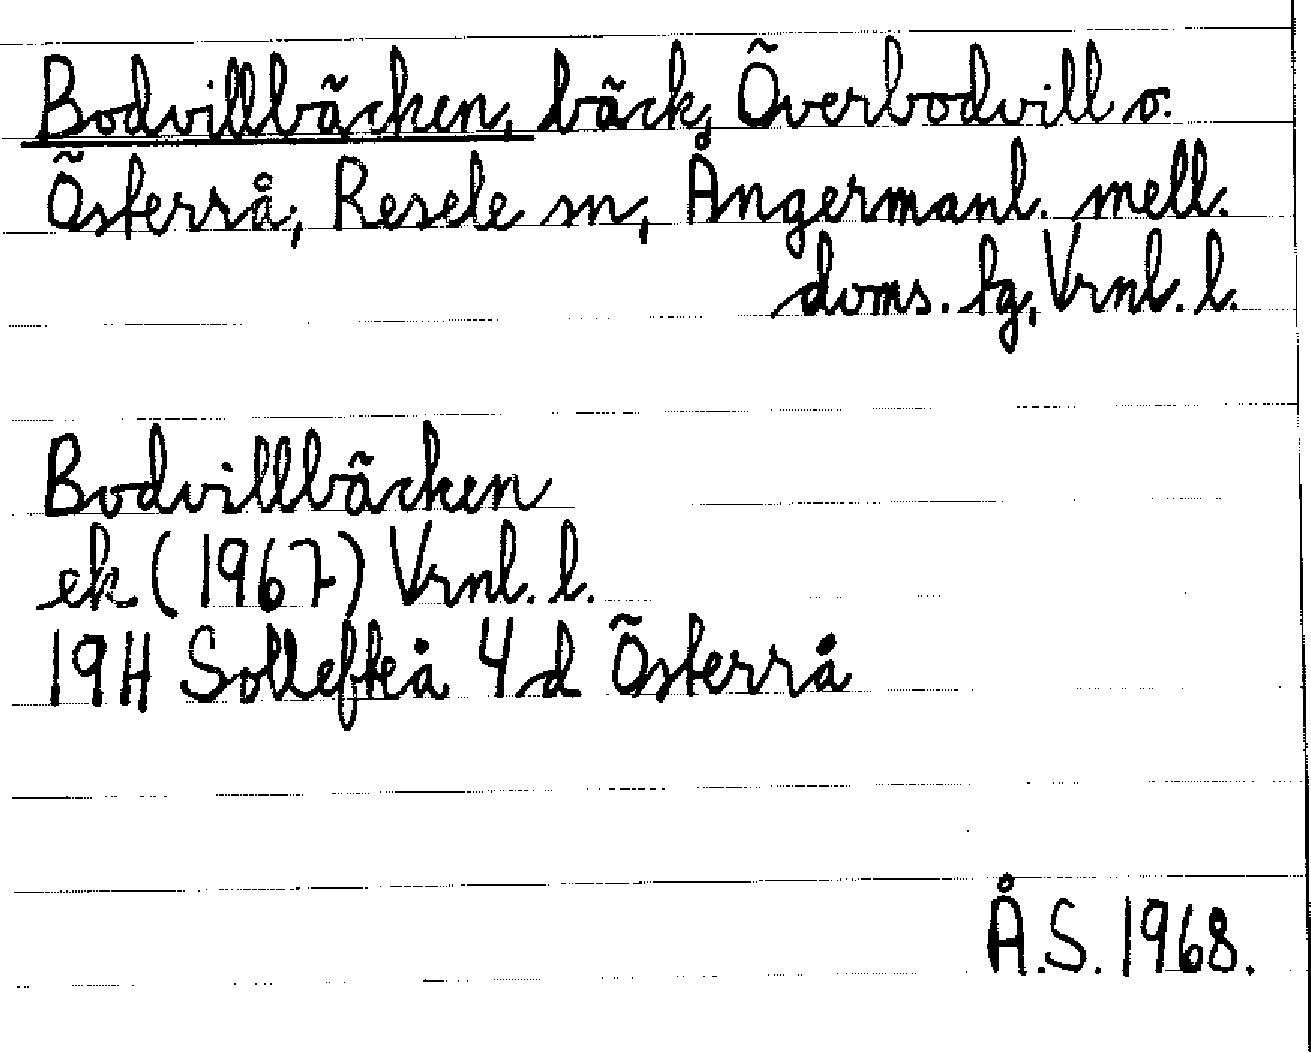 Bodvillbäcken, bäck, Överbodvill o.
Österrå, Resele sn, Ångermanl. mell.
doms. fg, Vrnl. l.
Bodvillbäcken
ek (1967) Vrnl. l.
19H Sollefteå 4d Österrå
Å.S. 1968.